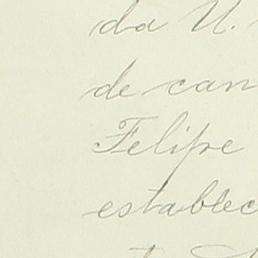 da U.
de can
Felipe
establec